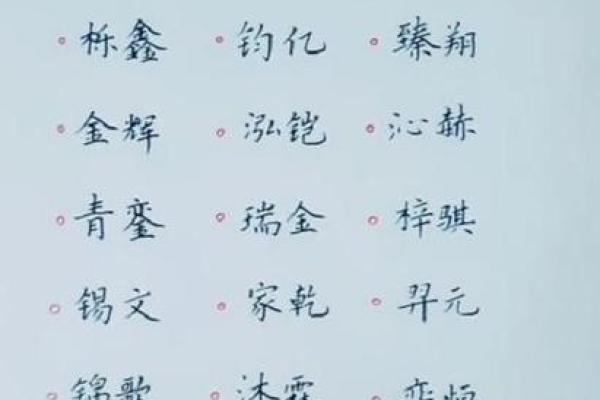 栎鑫 钧亿 臻翔
金辉 泓铠 沁赫
青銮 瑞金 梓骐
锡文 家乾 羿元
锦歌 沐霖